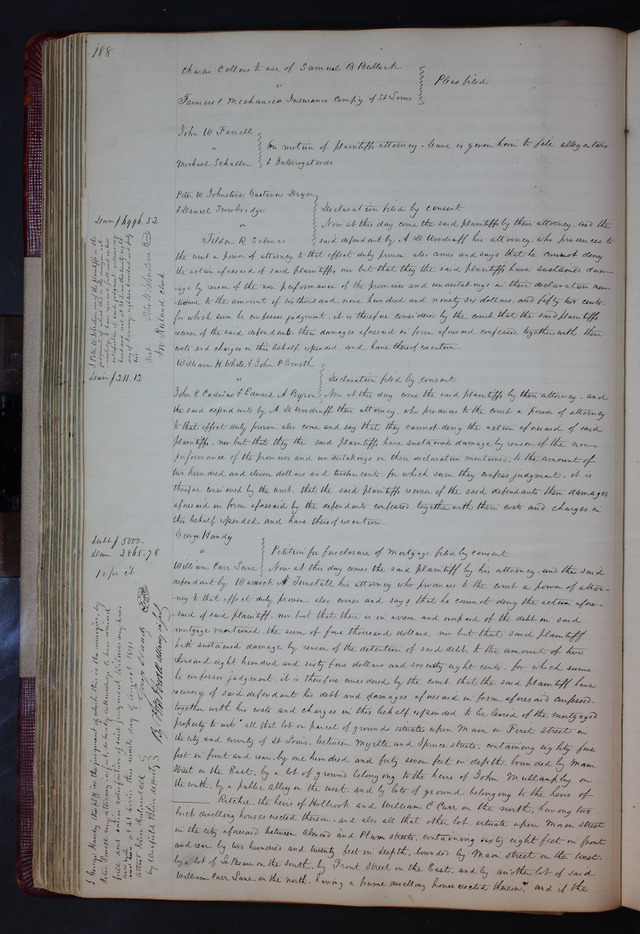 188
Charles Collins to use of Samuel B Bullock
"
Farmers & Mechanics Insurance Comp'y of St Louis
Pleas filed
John W Farrell
"
Michael Schaller
On motion of plaintiffs attorney, leave is given him to file allegations
& Interrogatories
Peter W Johnstone Gustavus Dryer
& Daniel Trowbridge
"
Declaration filed by consent
Now at this day come the said plaintiffs by their attorney, and the
said defendant by A De Woodruff his attorney, who produces to
the court a power of attorney to that effect duly proven, also comes and says that he cannot deny
the action aforesaid of said plaintiffs, nor but that they the said plaintiffs have sustained dam-
age by reason of the non performance of the promises and undertakings in their declaration men-
tioned, to the amount of six thousand, nine hundred and ninety six dollars, and fifty two cents,
for which sum he confesses judgment, it is therefore considered by the court that the said plaintiffs
recover of the said defendants, their damages aforesaid in form aforesaid confessed, together with their
costs and charges in this behalf expended, and have thereof execution
Dam $6996.52
William H White & John P Smith
"
Declaration filed by consent
Dam $211.12
Edward A Byron
Now at this day come the said plaintiffs by their attorney, and
the said defendants by A De Woodruff their attorney, who produces to the court a power of attorney
to that effect duly proven, also come and say that they cannot deny the action aforesaid of said
plaintiffs, nor but that they the said plaintiffs have sustained damage by reason of the non-
performance of the promises and undertakings in their declaration mentioned, to the amount of
two hundred and eleven dollars and twelve cents, for which sum they confess judgment, it is
therefore considered by the court, that the said plaintiffs recover of the said defendants their damages
aforesaid in form aforesaid by the defendants confessed, together with their costs and charges in
this behalf expended, and have thereof execution.
George Handy
"
William Carr Lane
Debt $5000.
Dam 2865.78
10 pr ct
Petition for foreclosure of mortgage filed by consent
Now at this day comes the said plaintiff by his attorney, and the said
defendant by Warrick Tunstall his attorney who produces to the court a power of attor-
ney to that effect duly proven, also comes and says that he cannot deny the action afore-
said of said plaintiff, nor but that there is in arrear and unpaid of the debt in said
mortgage mentioned, the sum of five thousand dollars, nor but that said plaintiff
hath sustained damage by reason of the detention of said debt, to the amount of two
thousand eight hundred and sixty five dollars and seventy eight cents, for which sums
he confesses judgment, it is therefore considered by the court that the said plaintiff have
recovery of said defendant his debt and damages aforesaid in form aforesaid confessed,
together with his costs and charges in this behalf expended to be levied of the mortgaged
property to wit "all that lot or parcel of ground situate upon Main or First street in
the city and county of St Louis, between Myrtle and Spruce streets, containing eighty five
feet in front and rear, by one hundred and forty seven feet in depth, bounded by Main
Street on the East, by a lot of ground belonging to the heirs of John McLanphy on
the south, by a public alley on the west, and by lots of ground belonging to the heirs of
Ritchie, the heirs of Holbrook and William C Carr on the north, having two
brick dwelling houses erected thereon, and also all that other lot situate upon Main street
in the city aforesaid between Almond and Plum streets, containing sixty eight feet in front
and rear by two hundred and twenty feet in depth, bounded by Main Street on the west
by a lot of La Beaum on the south, by Front Street on the East, and by another lot of said
William Carr Lane, on the north, having a frame dwelling house erected thereon", and if the